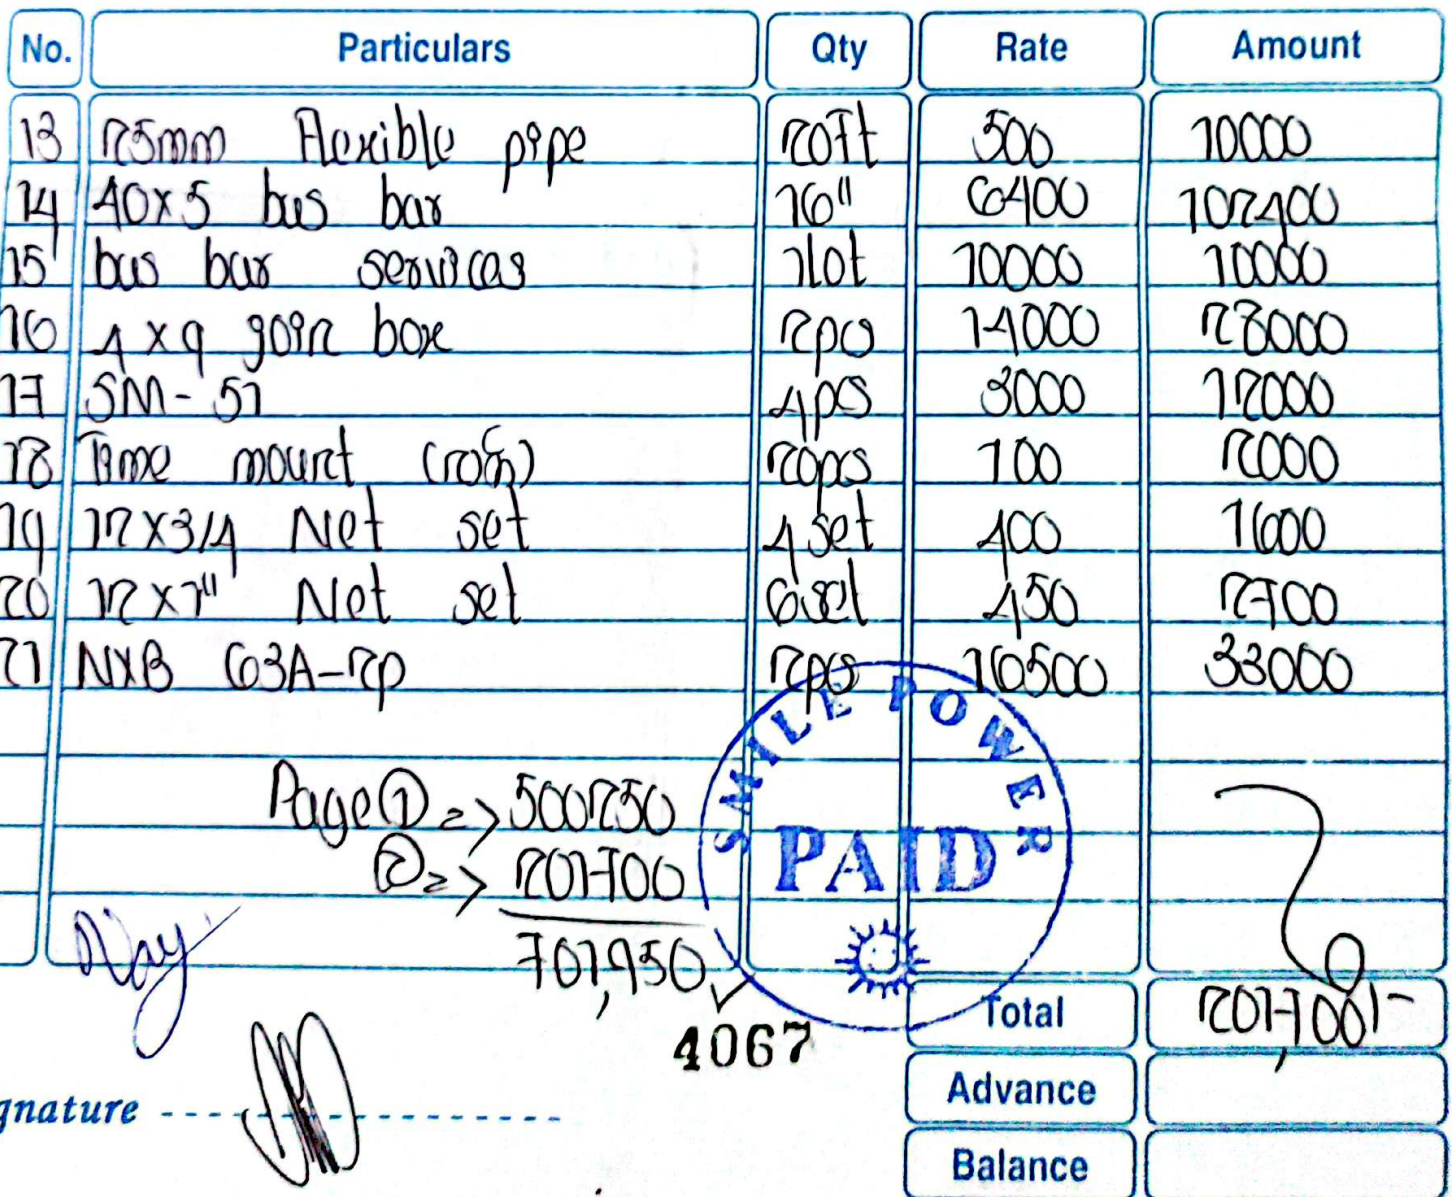 No. Particulars Qty Rate Amount
13 25mm Flexible pipe 20ft 500 10000
14 40x5 bus bar 16" 6400 102400
15 bus bar services 1lot 10000 10000
16 4x9 join box 2pcs 14000 28000
17 SM-51 4pcs 3000 12000
18 Time mount 20pcs 100 2000
19 12x3/4 Net set 4set 400 1600
20 12x1" Net set 6set 450 2700
21 NXB 63A-2p 2pcs 16500 33000
Page ① => 500250
② => 201700
701,950
SMILE POWER
PAID
4067
Total 201,700/-
gnature
Advance
Balance